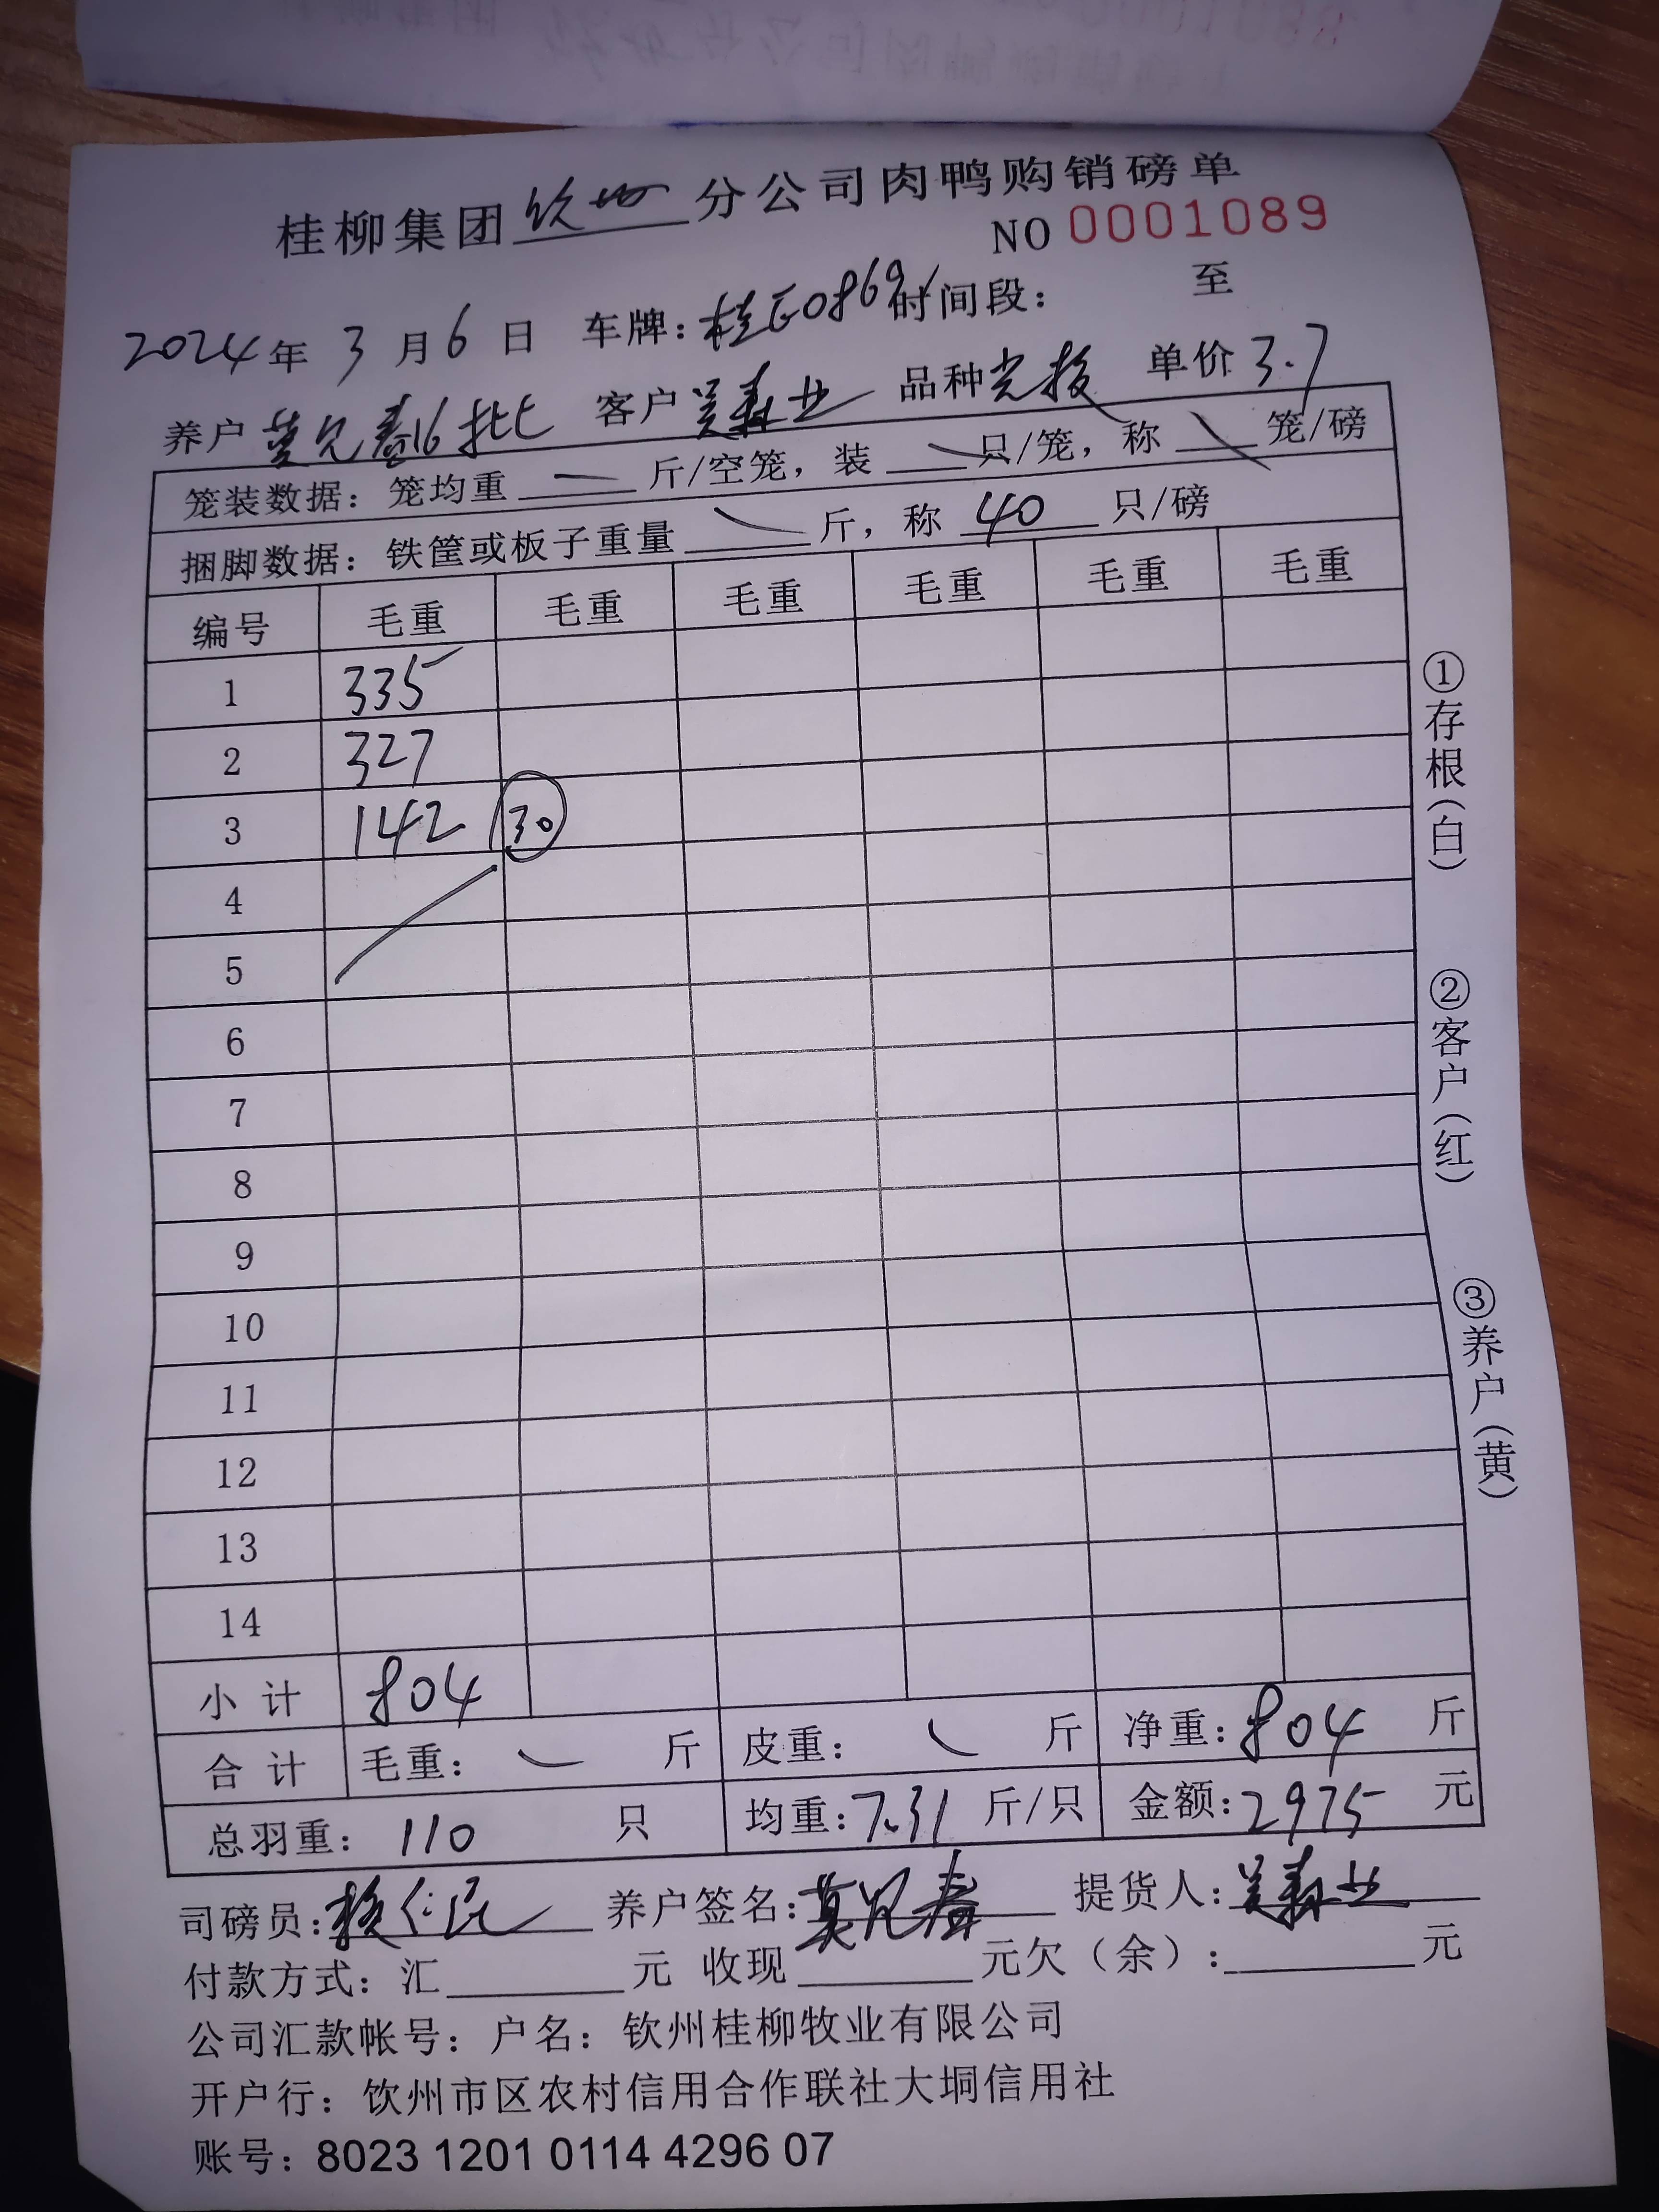 桂柳集团钦州分公司肉鸭购销磅单
NO 0001089
2024年3月6日 车牌：桂E0869 时间段： 至
养户 莫兄春16批 客户 吴森业 品种 单价3.7
笼装数据：笼均重 斤/空笼，装 只/笼，称 笼/磅
捆脚数据：铁筐或板子重量 斤，称 40 只/磅
编号 毛重 毛重 毛重 毛重 毛重 毛重
1 335
2 327
3 142 30
4
5
6
7
8
9
10
11
12
13
14
小计 804
合计 毛重： 斤 皮重： 斤 净重：804 斤
总羽重：110 只 均重：7.31 斤/只 金额：2975 元
司磅员： 养户签名：莫兄春 提货人：吴森业
付款方式：汇 元 收现 元欠（余）： 元
公司汇款帐号：户名：钦州桂柳牧业有限公司
开户行：钦州市区农村信用合作联社大垌信用社
账号：8023 1201 0114 4296 07
①存根（白）
②客户（红）
③养户（黄）